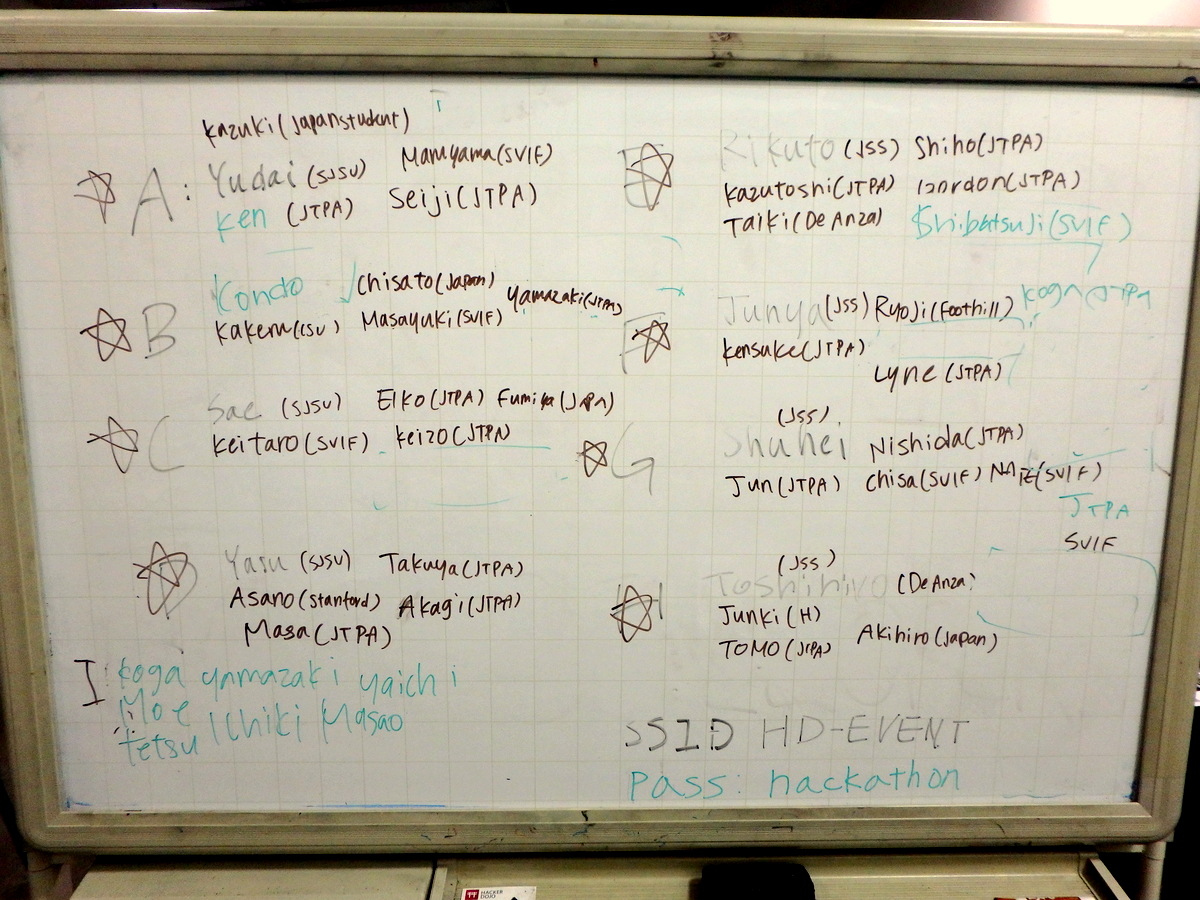 Kazuki (Japanstudent)
A: Yudai (SJSU) Maruyama (SVIF)
Ken (JTPA) Seiji (JTPA)
B Kondo Chisato (Japan) Yamazaki (JTPA)
Kakeru (CSU) Masayuki (SVIF)
C Sae (SJSU) EIKO (JTPA) Fumiya (JAPA)
Keitaro (SVIF) Keizo (JTPA)
D Yasu (SJSU) Takuya (JTPA)
Asano (Stanford) Akagi (JTPA)
Masa (JTPA)
I Koga yamazaki yaichi
Moe Ichiki Masao
tetsu
E Rikuto (JSS) Shiho (JTPA)
Kazutoshi (JTPA) (JTPA)
Taiki (De Anza) Shibatsuji (SVIF)
F Junya (JSS) Ryoji (Foothill) Koga (JTPA
Kensuke (JTPA)
Lyne (JTPA)
(JSS)
G Shuhei Nishida (JTPA)
Jun (JTPA) Chisa (SVIF) (SVIF)
JTPA
SVIF
(JSS)
H Toshihiro (De Anza)
Junki (H)
TOMO (JTPA) Akihiro (Japan)
SSID HD-EVENT
Pass: hackathon
HACKER
DOJO